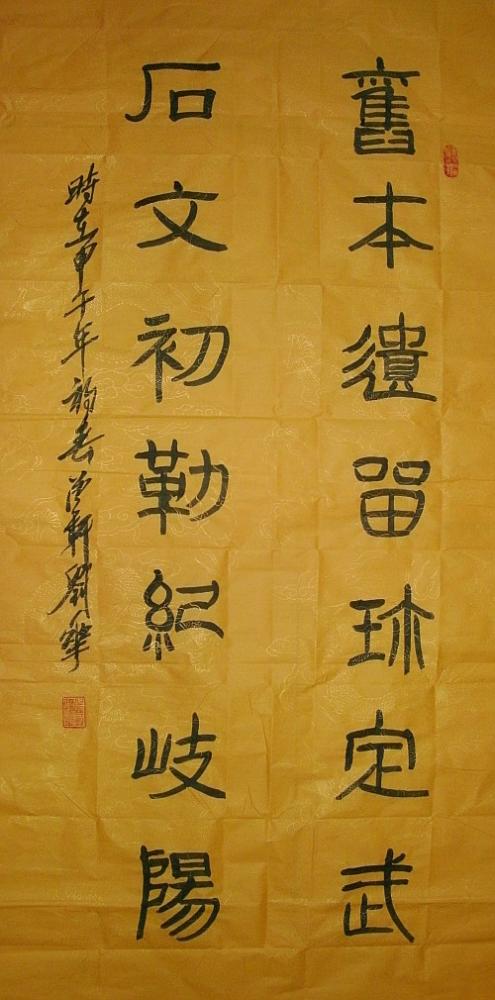 舊本遺留珎定武
石文初勒紀岐陽
時在甲午年初春軒劉華